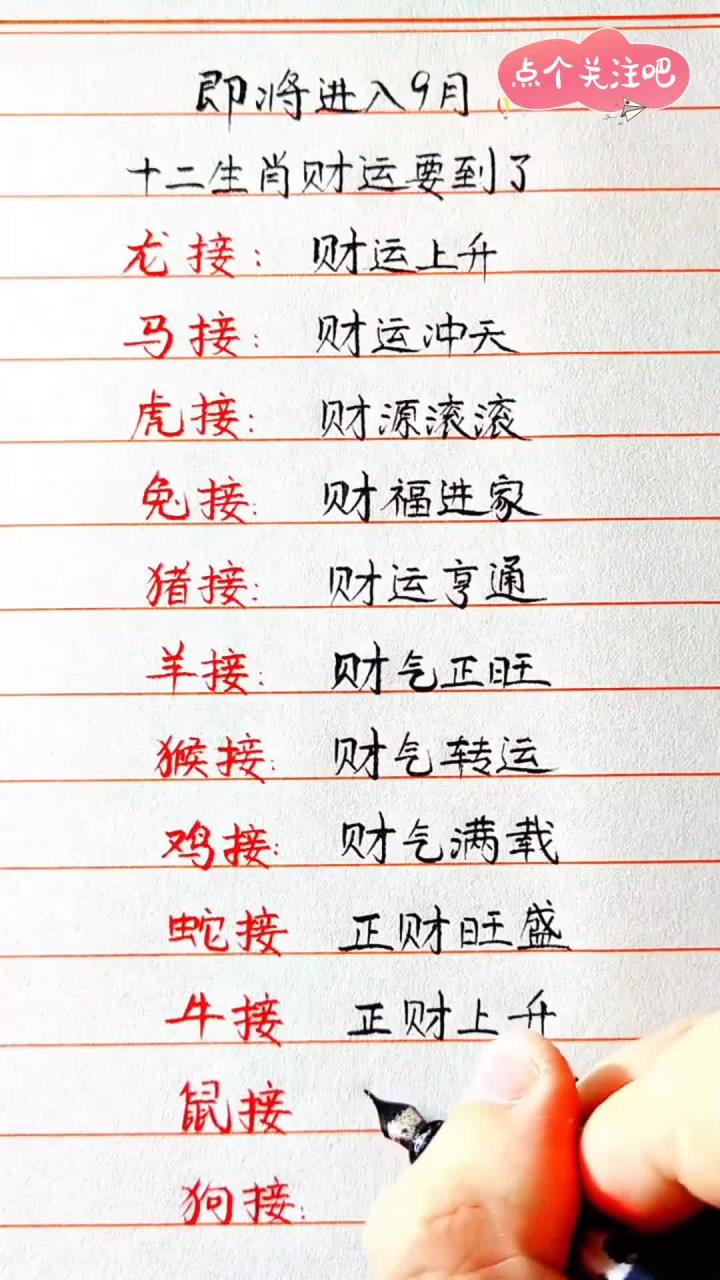 点个关注吧
即将进入9月
十二生肖财运要到了
龙接：财运上升
马接：财运冲天
虎接：财源滚滚
兔接：财福进家
猪接：财运亨通
羊接：财气正旺
猴接：财气转运
鸡接：财气满载
蛇接 正财旺盛
牛接 正财上升
鼠接
狗接：